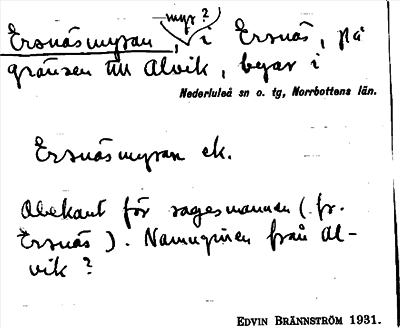 myr?
Ersnäsmyran, i Ersnäs, på
gränsen till Alvik, byar i
Nederluleå sn o. tg, Norrbottens län.
Ersnäsmyran ek.
Obekant för sagesmannen (fr.
Ersnäs). Namngiven från Al-
vik?
EDVIN BRÄNNSTRÖM 1931.